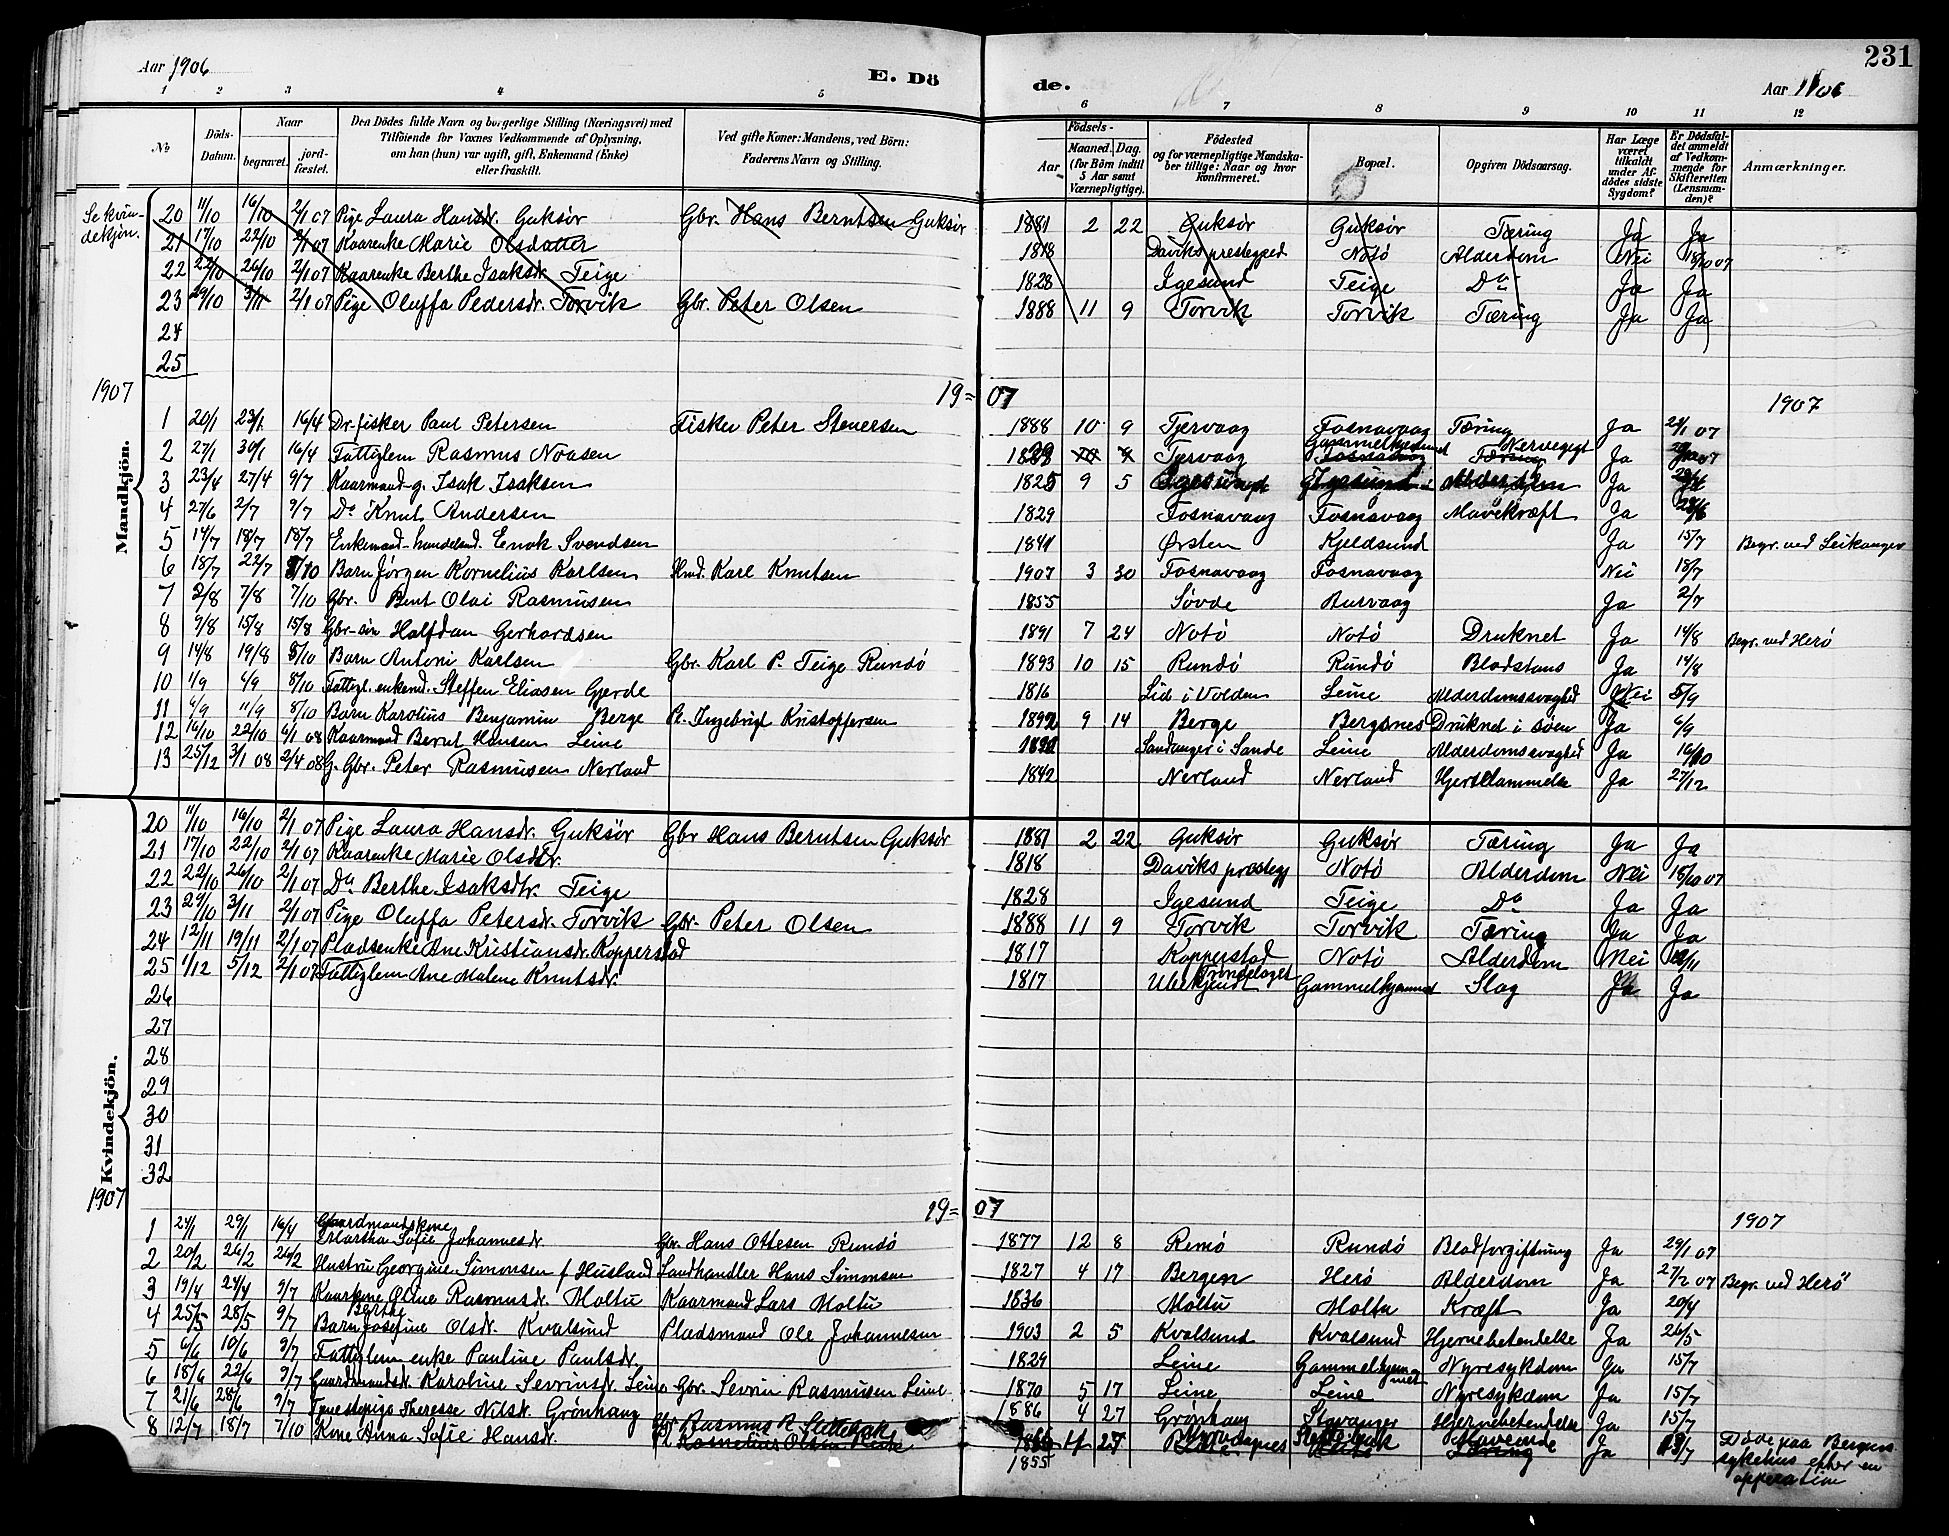 Aar 1906
E. Dö
de.
Aar 1906
231
1 2 3 4 5 6 7 8 9 10 11 12
No
Döds-Datum.
Naar
begravet.
jord-fæstet.
Den Dödes fulde Navn og borgerlige Stilling (Næringsvei) med
Tilföiende for Voxnes Vedkommende af Oplysning,
om han (hun) var ugift, gift, Enkemand (Enke)
eller fraskilt.
Ved gifte Koner: Mandens, ved Börn:
Faderens Navn og Stilling.
Födsels-
Aar
Maaned. Dag.
(for Börn indtil
5 Aar samt
Værnepligtige).
Födested
og for værnepligtige Mandska-
ber tillige: Naar og hvor
konfirmeret.
Bopæl.
Opgiven Dödsaarsag.
Har Læge
været
tilkaldt
under Af-
dödes sidste
Sygdom?
Er Dödsfal-
det anmeldt
af Vedkom-
mende for
Skifteretten
(Lensman-
den)?
Anmærkninger.
Se kvin-
dekjön.
20 11/10 16/10 2/1 07 Pige Laura Hansdr. Guksör Gbr. Hans Berntsen Guksör 1881 2 22 Guksör Guksör Tæring Ja Ja
21 17/10 22/10 2/1 07 Kaarenke Marie Olsdatter 1818 Daviks prestegjed Notö Alderdom Nei 18/10 07
22 22/10 26/10 2/1 07 Kaarenke Berthe Isaksdr. Teige 1828 Igesund Teige Do Ja Ja
23 29/10 3/11 2/1 07 Pige Oluffa Pedersdr. Torvik Gbr. Peter Olsen 1888 11 9 Torvik Torvik Tæring Ja Ja
24
25
1907 19=07 1907
Mandkjön.
1 20/1 23/1 16/4 Dr. fisker Paul Petersen Fisker Peter Stenersen 1888 10 9 Tjervaag Fosnavaag Tæring Ja 24/1 07
2 27/1 30/1 16/4 Fattiglem Rasmus Noasen Tjervaag Ja
3 23/4 27/4 9/7 Kaarmand g. Isak Isaksen 1825 9 5 Ja
4 27/6 2/7 9/7 Do Knut Andersen 1829 Fosnavaag Fosnavaag Mavekræft Ja 28/6
5 14/7 18/7 18/7 Enkemand-handelsmd. Enok Svendsen 1841 Ørsten Kjeldsund Ja 15/7 Begr. ved Leikanger
6 18/7 22/7 Barn Jørgen Kornelius Karlsen Hmd. Karl Knutsen 1907 3 30 Fosnavaag Fosnavaag Nei 18/7
7 2/8 7/8 7/10 Gbr. Bent Olai Rasmusen 1855 Søvde Burvaag Ja 2/7
8 9/8 15/8 15/8 Gbr-søn Halfdan Gerhardsen 1891 7 24 Notö Notö Druknet Ja 14/8 Begr. ved Herö
9 14/8 19/8 8/10 Barn Antoni Karlsen Gbr. Karl P. Teige Rundö 1893 10 15 Rundö Rundö Blodstans Ja 14/8
10 1/9 6/9 8/10 Fattigl. enkemd. Steffen Eliasen Gjerde 1816 Lid i Volden Leine Alderdomssvaghed Nei 5/9
11 6/9 11/9 8/10 Barn Karolius Benjamin Berge Pl. Ingebrigt Kristoffersen 1892 9 14 Berge Bergsnes Druknet i søen Ja 6/9
12 16/10 22/10 6/1 08 Kaarmand Bernt Hansen Leine Sandanger i Sande Leine Alderdomssvaghed Ja 16/10
13 25/12 3/1 08 2/4 08 G. Gbr. Peter Rasmusen Nerland 1842 Nerland Nerland Hjertelammelse Ja 27/12
Kvindekjön.
20 11/10 16/10 2/1 07 Pige Laura Hansdr. Guksör Gbr Hans Berntsen Guksör 1881 2 22 Guksör Guksör Tæring Ja Ja
21 17/10 22/10 2/1 07 Kaarenke Marie Olsdtr. 1818 Daviks prestegj Notö Alderdom Nei 18/10 07
22 22/10 26/10 2/1 07 Do Berthe Isaksdtr. Teige 1828 Igesund Teige Do Ja Ja
23 29/10 3/11 2/1 07 Pige Oluffa Petersdr. Torvik Gbr. Peter Olsen 1888 11 9 Torvik Torvik Tæring Ja Ja
24 12/11 19/11 2/1 07 Pladsenke Ane Kristiansdr. Kopperstad 1817 Kopperstad Notö Alderdom Nei
25 1/12 5/12 2/1 07 Fattiglem Ane Malene Knutsdr. 1817 Ubekjendt Trondelaget Slag Ja Ja
26
27
28
29
30
31
32
1907 19=07 1907
1 24/1 29/1 16/4 Gaardmandskone Martha Sofie Johannesdr Gbr. Hans Ottesen Rundö 1877 12 8 Remö Rundö Blodforgiftning Ja 29/1 07
2 20/2 26/2 26/2 Hustru Georgine Simonsen f Husland Landhandler Hans Simonsen 1827 4 17 Bergen Herö Alderdom Ja 27/2 07 Begr. ved Herö
3 19/4 24/4 9/7 Kaarkone Oline Rasmusdr. Moltu Kaarmand Lars Moltu 1836 Moltu Moltu Kræft Ja 20/4
4 25/5 28/5 9/7 Barn Berthe Josefine Olsdr. Kvalsund Pladsmand Ole Johannesen 1903 2 5 Kvalsund Kvalsund Hjernebetendelse Ja 26/5
5 6/6 10/6 9/7 Fattiglem enke Pauline Paulsdr. 1829 Leine Nyresykdom Ja 15/7
6 18/6 22/6 9/7 Gaardmandsdr. Karoline Sevrinsdr. Leine Gbr. Sevrin Rasmusen Leine 1870 5 17 Leine Leine Nyresykdom Ja 15/7
7 21/6 28/6 9/7 Tjenestepige Therese Nilsdr. Grönhaug 1886 4 27 Grönhaug Stavanger Hjernebetendelse Ja 15/7
8 12/7 18/7 7/10 Kone Anna Sofie Hansdr. Gbr Rasmus R. 1855 Ja Döde paa Bergens
sykehus efter en
opperation